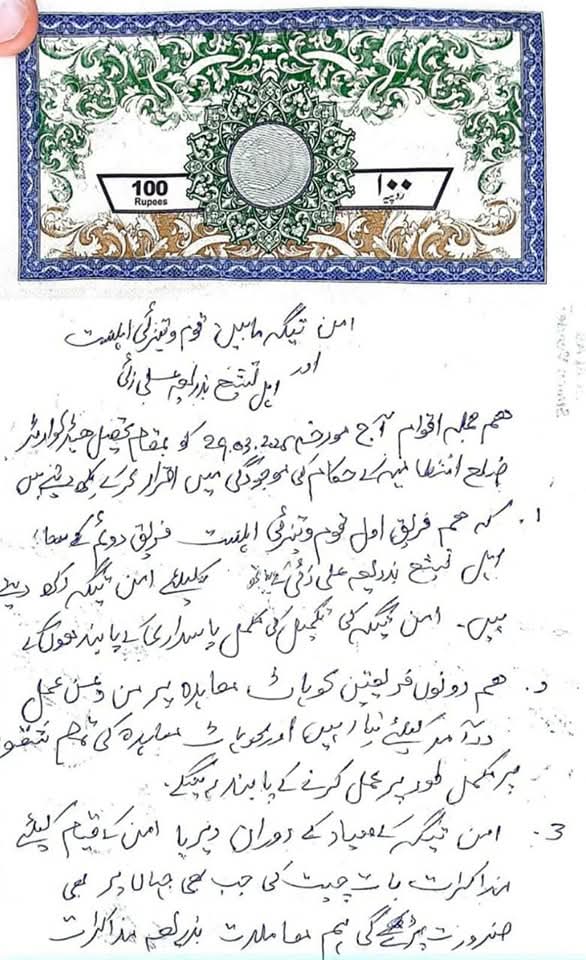 100
Rupees
۱۰۰
روپیہ
امن تیگہ مابین قوم وتیزئی اہلسنت
اور
اہل تشیع بذریعہ علی زئی
ہم جملہ اقوام آج مورخہ 29.03.2025 کو بمقام تحصیل ہیڈکوارٹر
ضلع انتظامیہ کے حکام کی موجودگی میں اقرار کرکے لکھ دیتے ہیں
1. کہ ہم فریق اول قوم وتیزئی اہلسنت فریق دوئم کے ساتھ
اہل تشیع بذریعہ علی زئی کے ساتھ کیلئے امن تیگہ رکھ دیتے
ہیں۔ امن تیگہ کی تکمیل کی مکمل پاسداری کے پابند ہوں گے
2. ہم دونوں فریقین کوہاٹ معاہدہ پر من و عن عمل
درآمد کیلئے تیار ہیں اور کوہاٹ معاہدہ کی تمام شقوں
پر مکمل طور پر عمل کرنے کے پابند رہینگے۔
3. امن تیگہ کے میعاد کے دوران دیرپا امن کے قیام کیلئے
مذاکرات بات چیت کی جب بھی جہاں پر بھی
ضرورت پڑے گی ہم معاملات بذریعہ مذاکرات